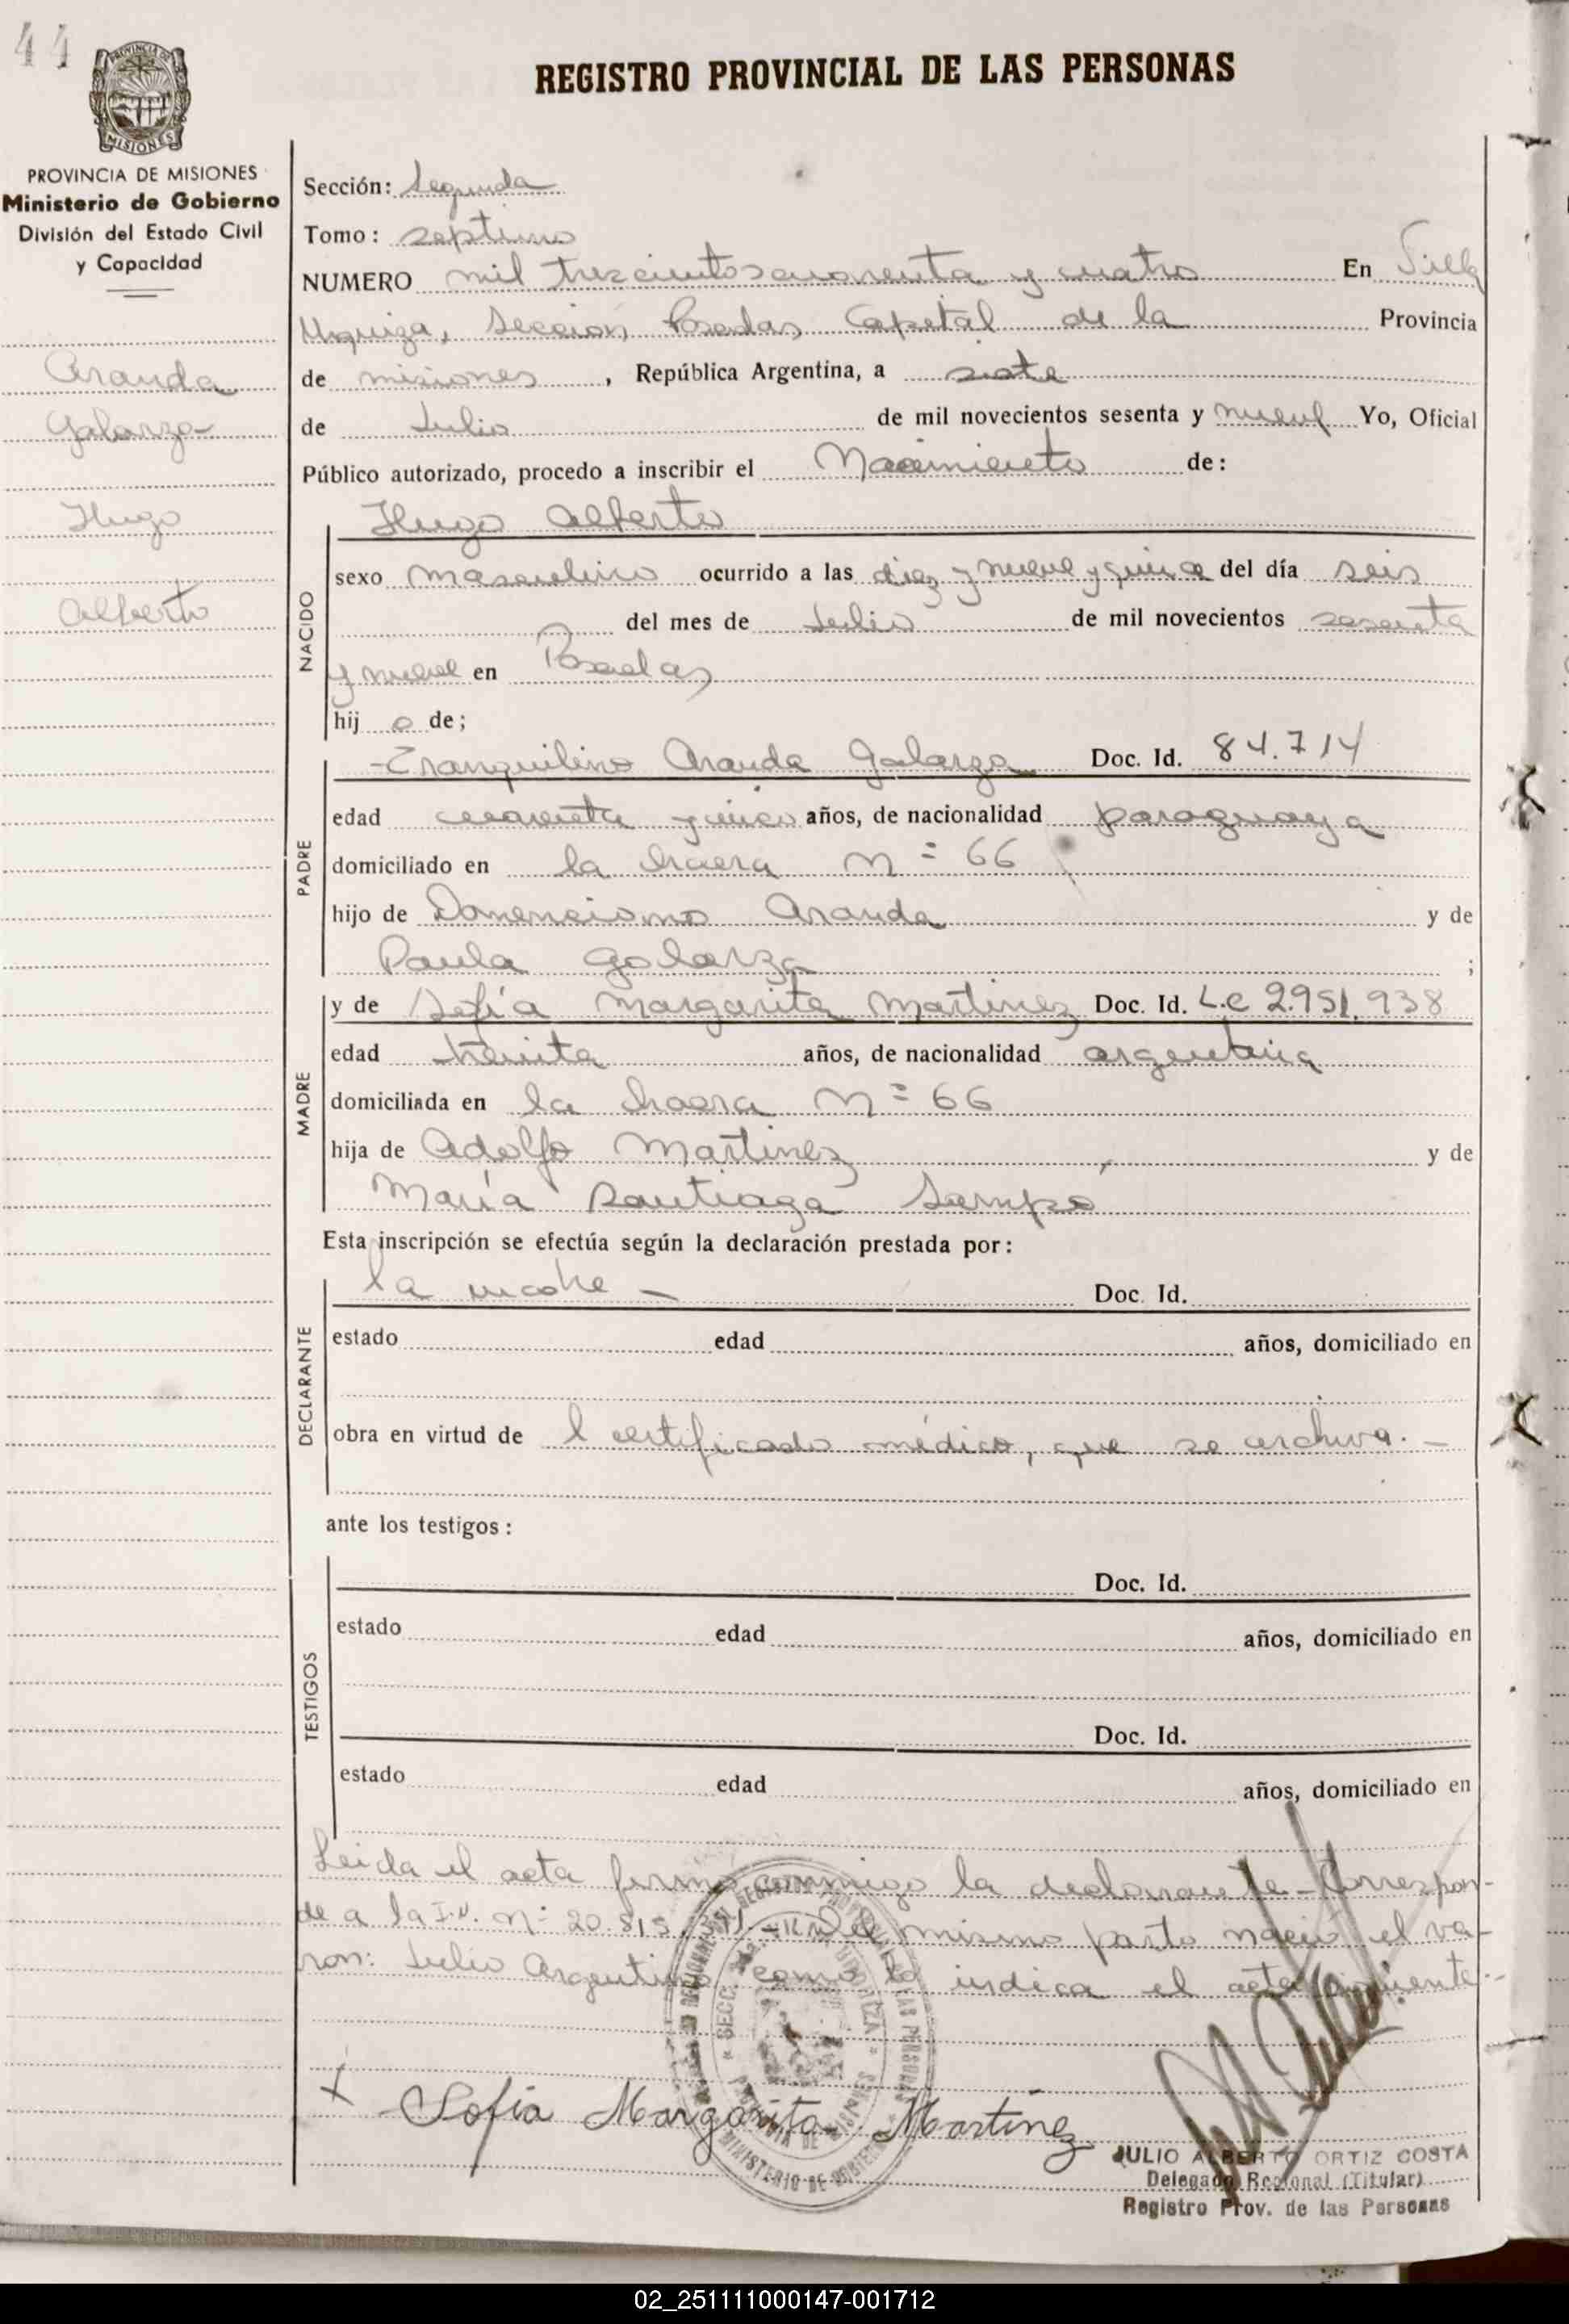 44
MISIONES
PROVINCIA DE MISIONES
Ministerio de Gobierno
División del Estado Civil
y Capacidad
Aranda
Galarza
Hugo
Alberto
REGISTRO PROVINCIAL DE LAS PERSONAS
Sección: Segunda
Tomo: septimo
NUMERO mil trescientos cuarenta y cuatro En Villa
Urquiza, Seccion Posadas Capital de la Provincia
de misiones, República Argentina, a siete
de Julio de mil novecientos sesenta y nueve Yo, Oficial
Público autorizado, procedo a inscribir el Nacimiento de:
NACIDO
Hugo Alberto
sexo masculino ocurrido a las diez y nueve y quince del día seis
del mes de Julio de mil novecientos sesenta
y nueve en Posadas
hij o de;
PADRE
Tranquilino Aranda Galarza Doc. Id. 84.714
edad cuarenta y cinco años, de nacionalidad paraguaya
domiciliado en la chacra n= 66
hijo de Aranda y de
Paula Galarza ;
MADRE
y de Sofía Margarita Martinez Doc. Id. L.C 2.951.938
edad treinta años, de nacionalidad argentina
domiciliada en la chacra n= 66
hija de Adolfo Martinez y de
María Santiaga
Esta inscripción se efectúa según la declaración prestada por:
DECLARANTE
la madre - Doc. Id.
estado edad años, domiciliado en
obra en virtud de l certificado médico, que se archiva. -
ante los testigos:
TESTIGOS
Doc. Id.
estado edad años, domiciliado en
Doc. Id.
estado edad años, domiciliado en
Leida el acta firma conmigo la declarante - Correspon-
de a la I.N. n: 20.815. mismo parto nació el va-
ron: Julio Argentino como lo indica el acta siguiente.-
Sofía Margarita Martínez
JULIO ALBERTO ORTIZ COSTA
Delegado Regional (Titular)
Registro Prov. de las Personas
02_251111000147-001712